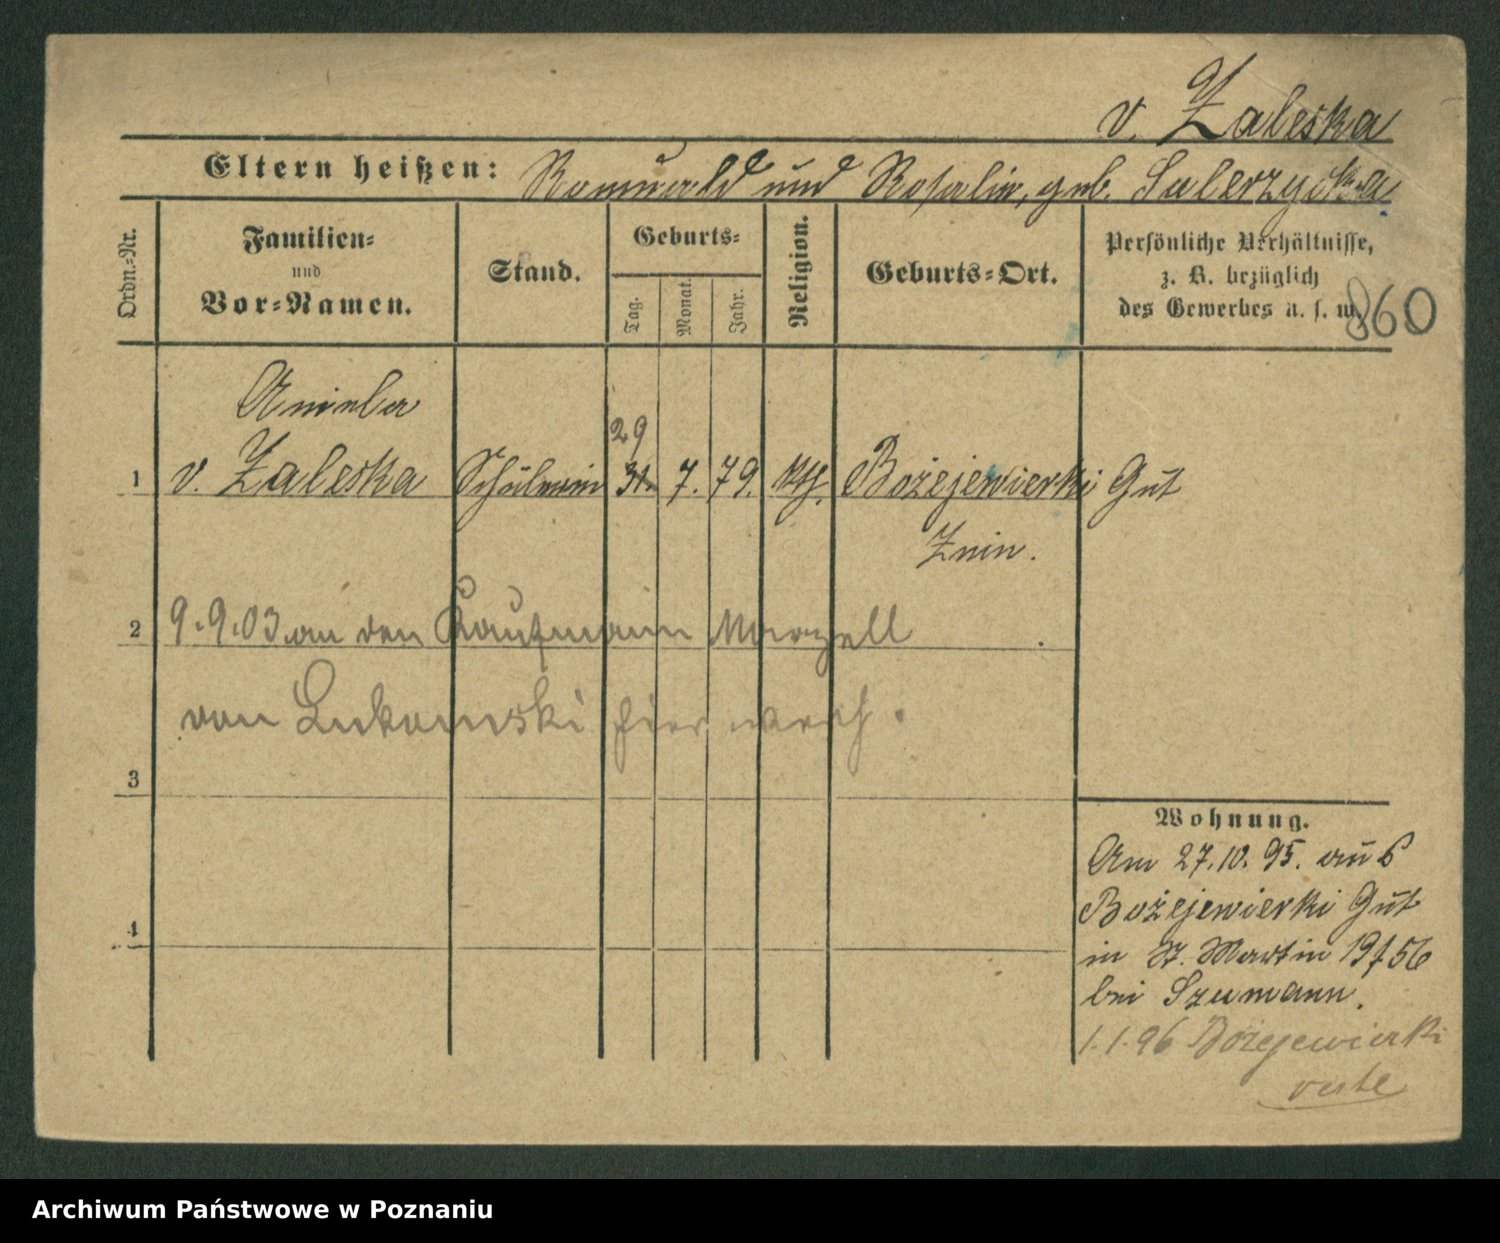 v. Zaleska
Eltern heißen: Romuald und Rosalie, geb. Sulerzycka
Ordn.-Nr.
Familien-
und
Vor-Namen.
Stand.
Geburts-
Tag.
Monat.
Jahr.
Religion.
Geburts-Ort.
Persönliche Verhältnisse,
z. B. bezüglich
des Gewerbes u. s. w.
860
Aniela
29
1 v. Zaleska Schülerin 31. 7. 79. kth. Bożejewierki Gut
Znin.
2 9.9.03 an den Kaufmann Marzell
von Lukomski hier verh.
3
4
Wohnung.
Am 27.10.95. aus
Bożejewierki Gut
in St. Martin 19/56
bei Szumann.
1.1.96 Bozejewierki
verte
Archiwum Państwowe w Poznaniu